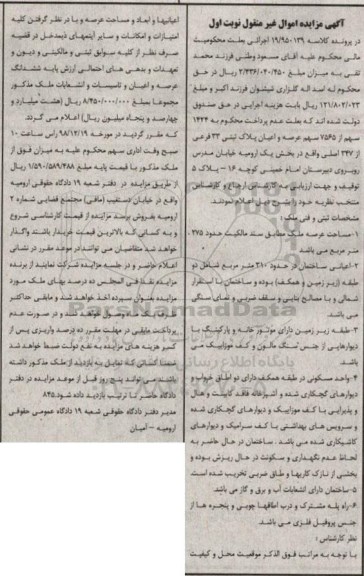 آگهی مزایده اموال غیر منقول نوبت اول
در پرونده کلاسه ۱۹/۹۵۰۱۳۹ اجرائی بعلت محکومیت
مالی محکوم علیه آقای مسعود وطنی فرزند محمد
علی به میزان مبلغ ۲/۲۳۶/۰۴۰/۴۵۰ ریال در حق
محکوم له اسد اله گزاری شیشوان فرزند اکبر و مبلغ
۱۲۱/۸۰۲/۰۲۳ ریال بابت هزینه اجرایی در حق صندوق
دولت شده اند که بعلت عدم پرداخت محکوم به ۱۴۲۴
سهم از ۷۵۶۵ سهم عرصه و اعیان پلاک ثبتی ۳۳ فرعی
از ۳۴۲ اصلی واقع در بخش یک ارومیه خیابان مدرس
روبروی دبیرستان امام خمینی کوچه ۱۶ – پلاک ۵
توقیف و جهت ارزیابی به کارشناس ارجاع و کارشناس
منتخب نظریه خود را بشرح ذیل اعلام نمودند.
مشخصات ثبتی و فنی ملک :
۱-مساحت عرصه ملک مطابق سند مالکیت حدود ۲۷۵
متر مربع می باشد
۲-اعیانی ساختمان در حدود ۳۱۰ متر مربع شامل دو
طبقه (زیر زمین و همکف) بوده و ساختمان با استقرار
شمالی و با مصالح بنایی و سقف ضربی و نمای سنگی
می باشد.
۳-طبقه زیر زمین دارای موتور خانه و پارکینگ با
دیوارهایی از جنس سنگ مالون و کف موزاییک می
باشد.
۴-واحد مسکونی در طبقه همکف دارای دو اطاق خواب و
دیوارهای گچکاری شده و آشپزخانه فاقد کابینت و هال
و پذیرایی با کف موزاییک و دیوارهای گچکاری شده
و سرویس های بهداشتی با کف سرامیک و دیوارهای
کاشیکاری شده می باشد . ساختمان در حال حاضر به
لحاظ عدم نگهداری و سکونت در حال ریزش بوده و
بخشی از نازک کاریها و طاق ضربی تخریب شده است.
۵-ساختمان دارای انشعابات آب و برق و گاز می باشد.
۶-راه پله مشترک و درب اطاقها چوبی و پنجره ها از
جنس پروفیل فلزی می باشد.
نظر کارشناس :
با توجه به مراتب فوق الذکر موقعیت محل و کیفیت
اعیانیها و ابعاد و مساحت عرصه و با در نظر گرفتن کلیه
امتیازات و امکانات و سایر آیتمهای ذیمدخل در قضیه
صرف نظر از کلیه سوابق ثبتی و مالکیتی و دیون و
تعهدات و بدهی های احتمالی ارزش پایه ششدانگ
عرصه و اعیان و تاسیسات و انشعابات ملک مذکور
مجموعا بمبلغ ۸/۴۵۰/۰۰۰/۰۰۰ ریال (هشت میلیارد و
چهارصد و پنجاه میلیون ریال) اعلام می گردد.
که مقرر گردید در مورخه ۹۸/۱۲/۱۹ راس ساعت ۱۰
صبح وقت اداری سهم محکوم علیه به میزان فوق از
ملک مذکور با قیمت پایه مبلغ ۱/۵۹۰/۵۸۹/۴۸۸ ریال
از طریق مزایده در دفتر شعبه ۱۹ دادگاه حقوقی ارومیه
واقع در خیابان دستغیب (مافی) مجتمع قضایی شماره ۲
ارومیه بفروش برسد مزایده از قیمت کارشناسی شروع
و به کسانی که بالاترین قیمت خریدار باشند واگذار
خواهد شد متقاضیان می توانند در موعد مقرر در نشانی
اعلام حاضر و در جلسه مزایده شرکت نمایند از برنده
مزایده نقدا فی المجلس ده درصد بهای ملک مورد
مزایده بعنوان سپرده اخذ خواهد شد و مابقی حداکثر
پرداخت مابقی در مهلت مقرر ده درصد واریزی پس از
کسر هزینه های مزایده به نفع دولت ضبط خواهد شد
ضمنا کسانی که تمایل به بازدید از ملک مذکور داشته
باشند می تواند پنج روز قبل از موعد مزایده در دفتر
دادگاه حاضر تا ترتیب بازدید داده شود.۸۴۵
مدیر دفتر دادگاه حقوقی شعبه ۱۹ دادگاه عمومی حقوقی
ارومیه –
ParsNamadData